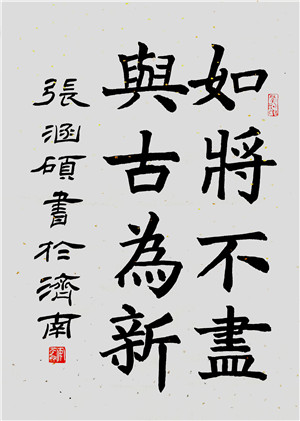 如將不盡
與古為新
張涵碩書於濟南